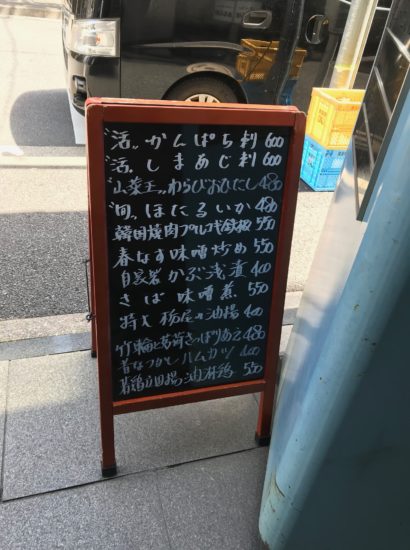 "活"かんぱち刺 600
"活"しまあじ刺 600
"山菜王"わらびおひたし 480
"旬"ほたるいか 480
韓国焼肉プルコギ鉄板 550
春なす味噌炒め 550
自家製かぶ浅漬 400
さば味噌煮 550
特大栃尾の油揚 400
竹輪と茗荷さっぱりあえ 480
昔なつかしハムカツ 400
若鶏立田揚 油淋鶏 550